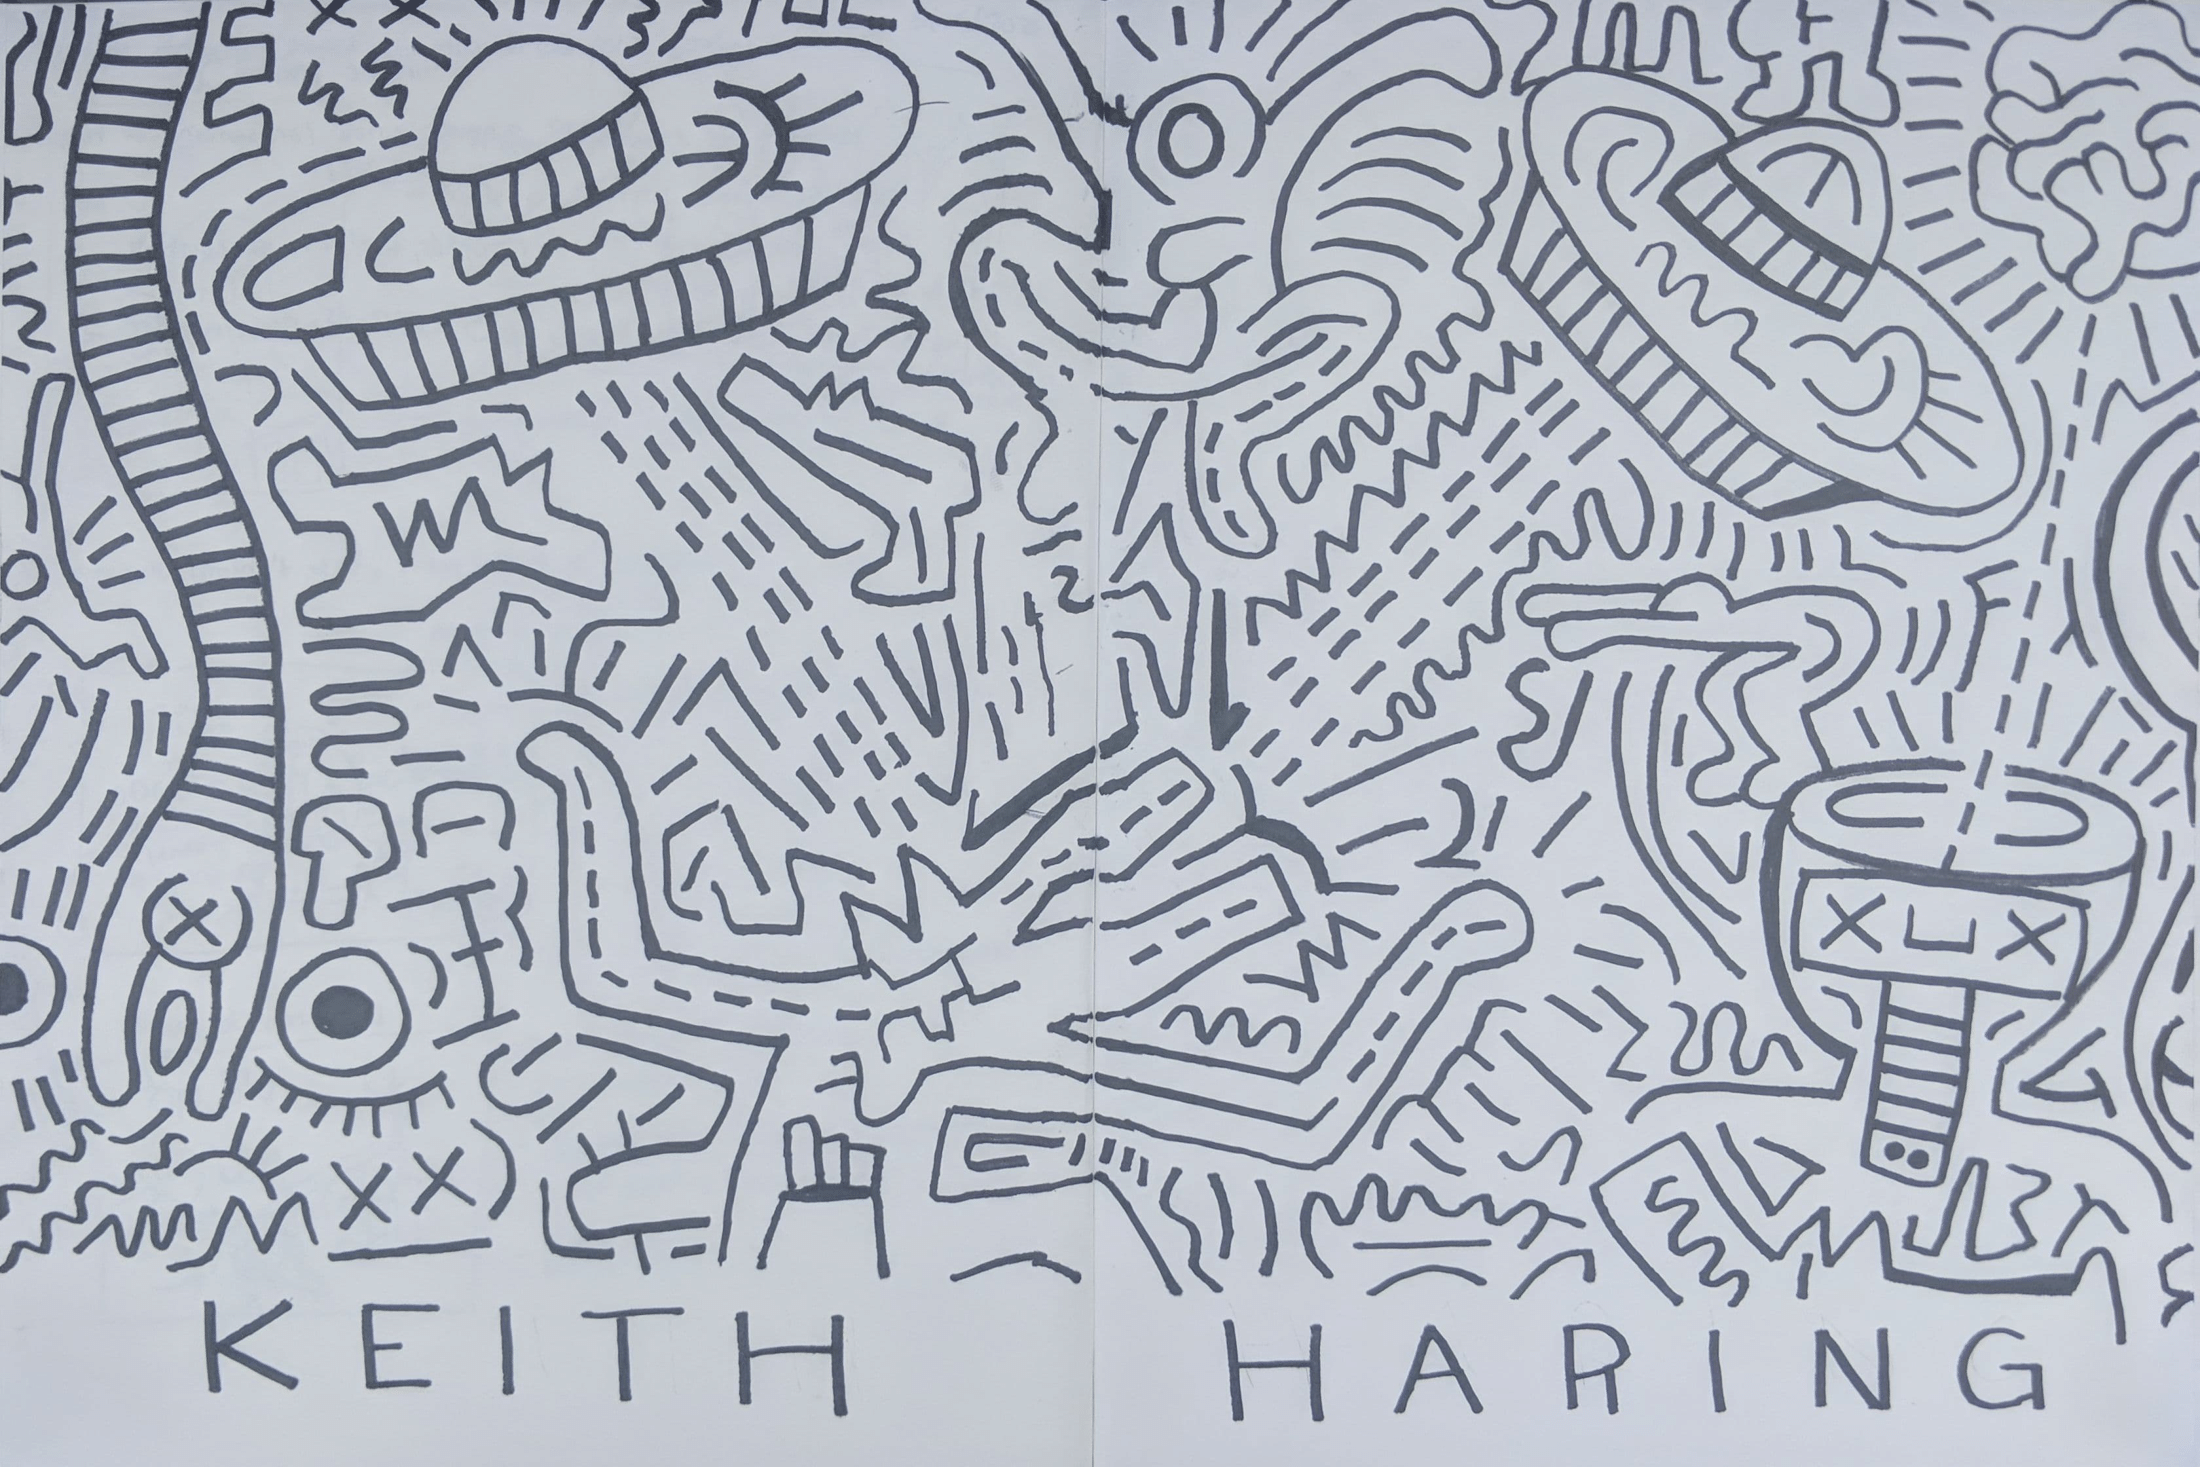 KEITH HARING